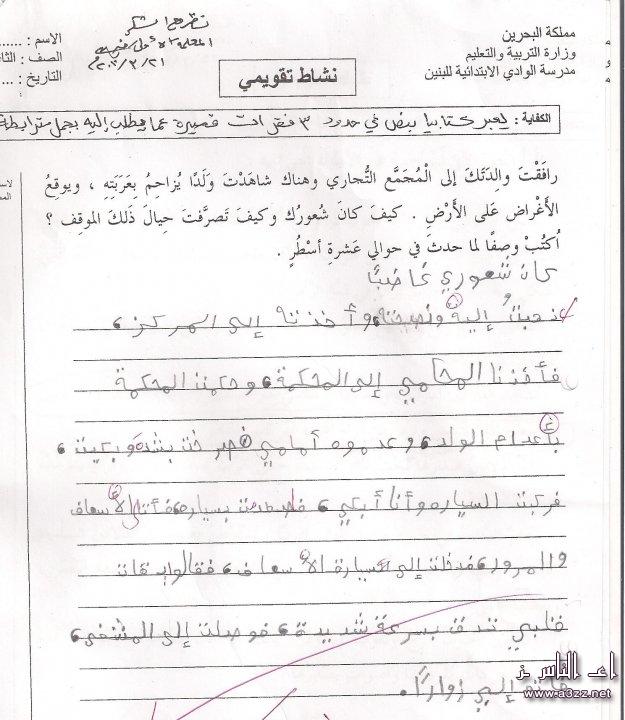 مملكة البحرين
وزارة التربية والتعليم
مدرسة الوادي الابتدائية للبنين
الاسم : ......
الصف : الثا
التاريخ : ....
نشاط تقويمي
الكفاية : يعبر كتابيا بنص في حدود ٣ فقرات قصيرة عما يطلب إليه بجمل مترابطة
رافَقْتَ والِدَتَكَ إلى الْمُجَمَّع التُّجاري وهناك شاهَدْتَ وَلَدًا يُزاحِمُ بِعَرَبَتِهِ ، ويوقِعُ
الأَغْراض عَلى الأَرْضِ . كيفَ كانَ شعورُك وكيفَ تَصرَّفتَ حِيالَ ذلكَ الموقِف ؟
اُكتُبْ وصفًا لما حدثَ في حوالي عَشرةِ أسْطُرٍ .
كان شعوري غاضبًا
ذهبتُ إليه ونصحته وأخذته إلى المركز ،
فأخذنا المحامي إلى المحكمة ، وحكمت المحكمة
بأعدام الولد ، وعدموه أمامي ، فصرخت بشدة وبكيت ،
فركبت السياره وأنا أبكي ، فاصطدمت بسياره ، فأتى الأسعاف
والمرور ، فدخلت إلى سيارة الأسعاف ، فقالوا
قلبي تدق بسرعة شديدة ، فوصلت إلى المشفى ،
إلي زوارًا .
اعـد الناس ز
www.a3zz.net